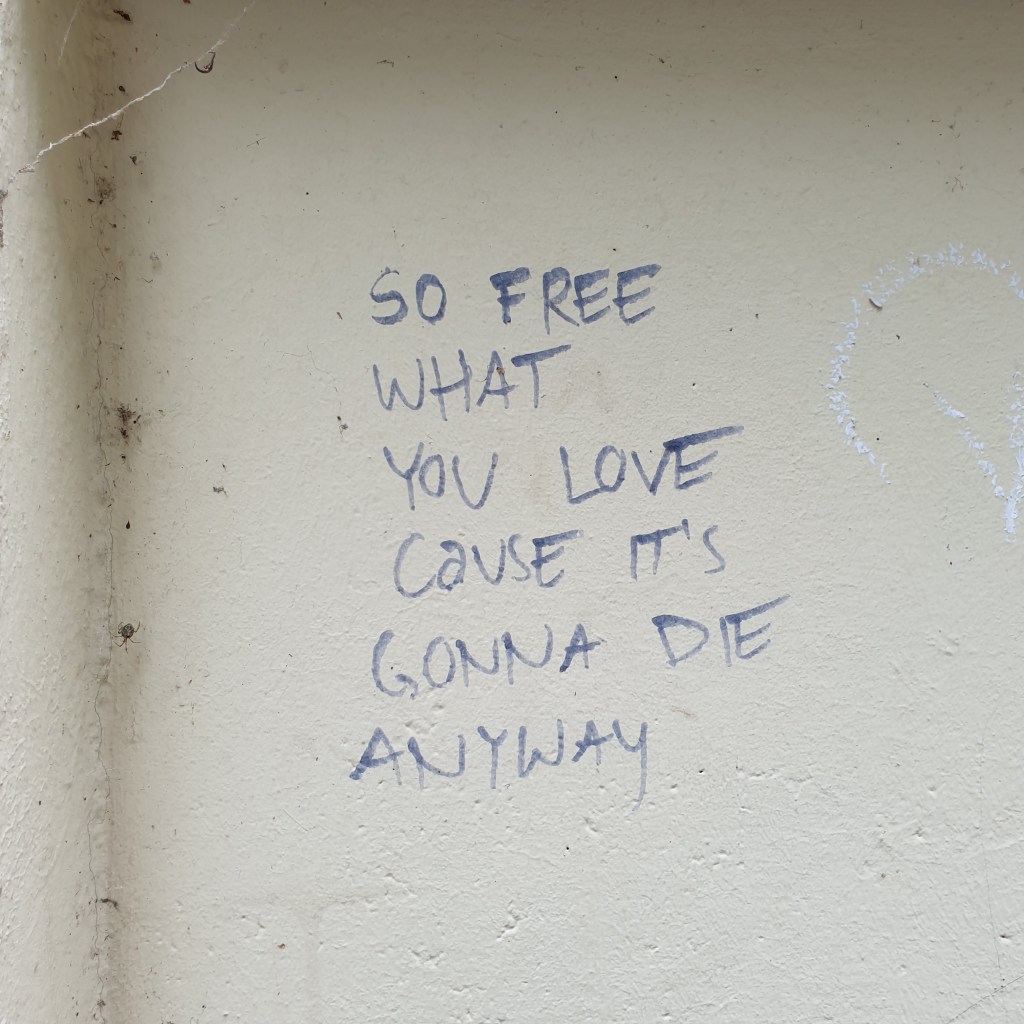 SO FREE
WHAT
YOU LOVE
CaUSE IT'S
GONNA DIE
ANYWAY